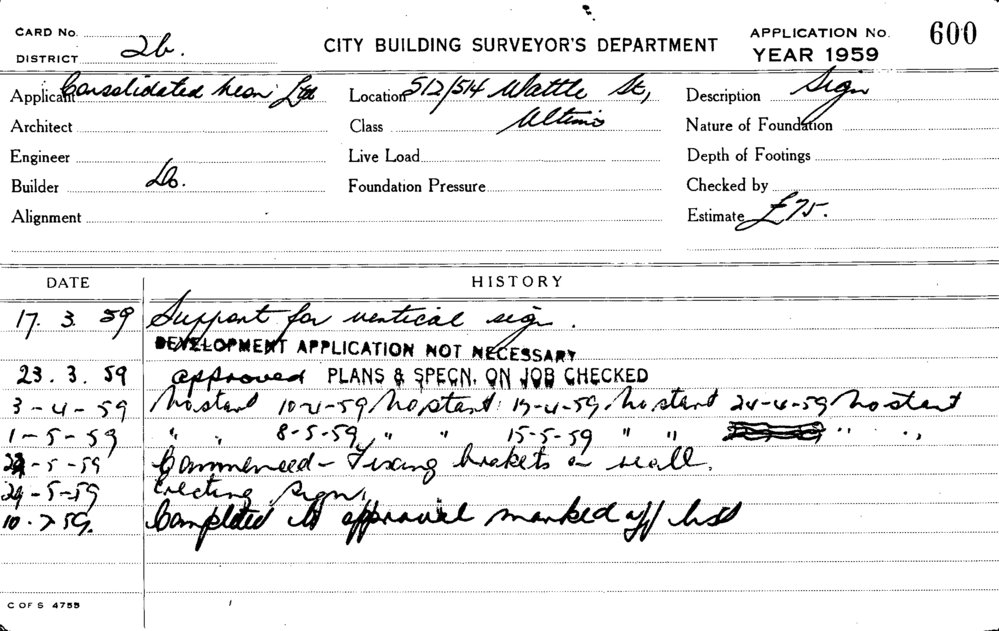 CARD No.
DISTRICT 2b.
CITY BUILDING SURVEYOR'S DEPARTMENT
APPLICATION No. 600
YEAR 1959
Applicant Consolidated Neon Ltd
Location 512/514 Wattle St,
Description Sign
Architect
Class Ultimo
Nature of Foundation
Engineer
Live Load
Depth of Footings
Builder Do.
Foundation Pressure
Checked by
Alignment
Estimate £75.
DATE HISTORY
17. 3. 59 Support for vertical sign.
DEVELOPMENT APPLICATION NOT NECESSARY
23. 3. 59 approved PLANS & SPECN. ON JOB CHECKED
3-4-59 No start 10-4-59 No start 17-4-59. No start 24-4-59 No start
1-5-59 " " 8-5-59 " " 15-5-59 " " " "
-5-59 Commenced - Fixing brakets on wall.
29-5-59 Erecting sign.
10.7.59. Completed to approval marked off list
C OF S 4755